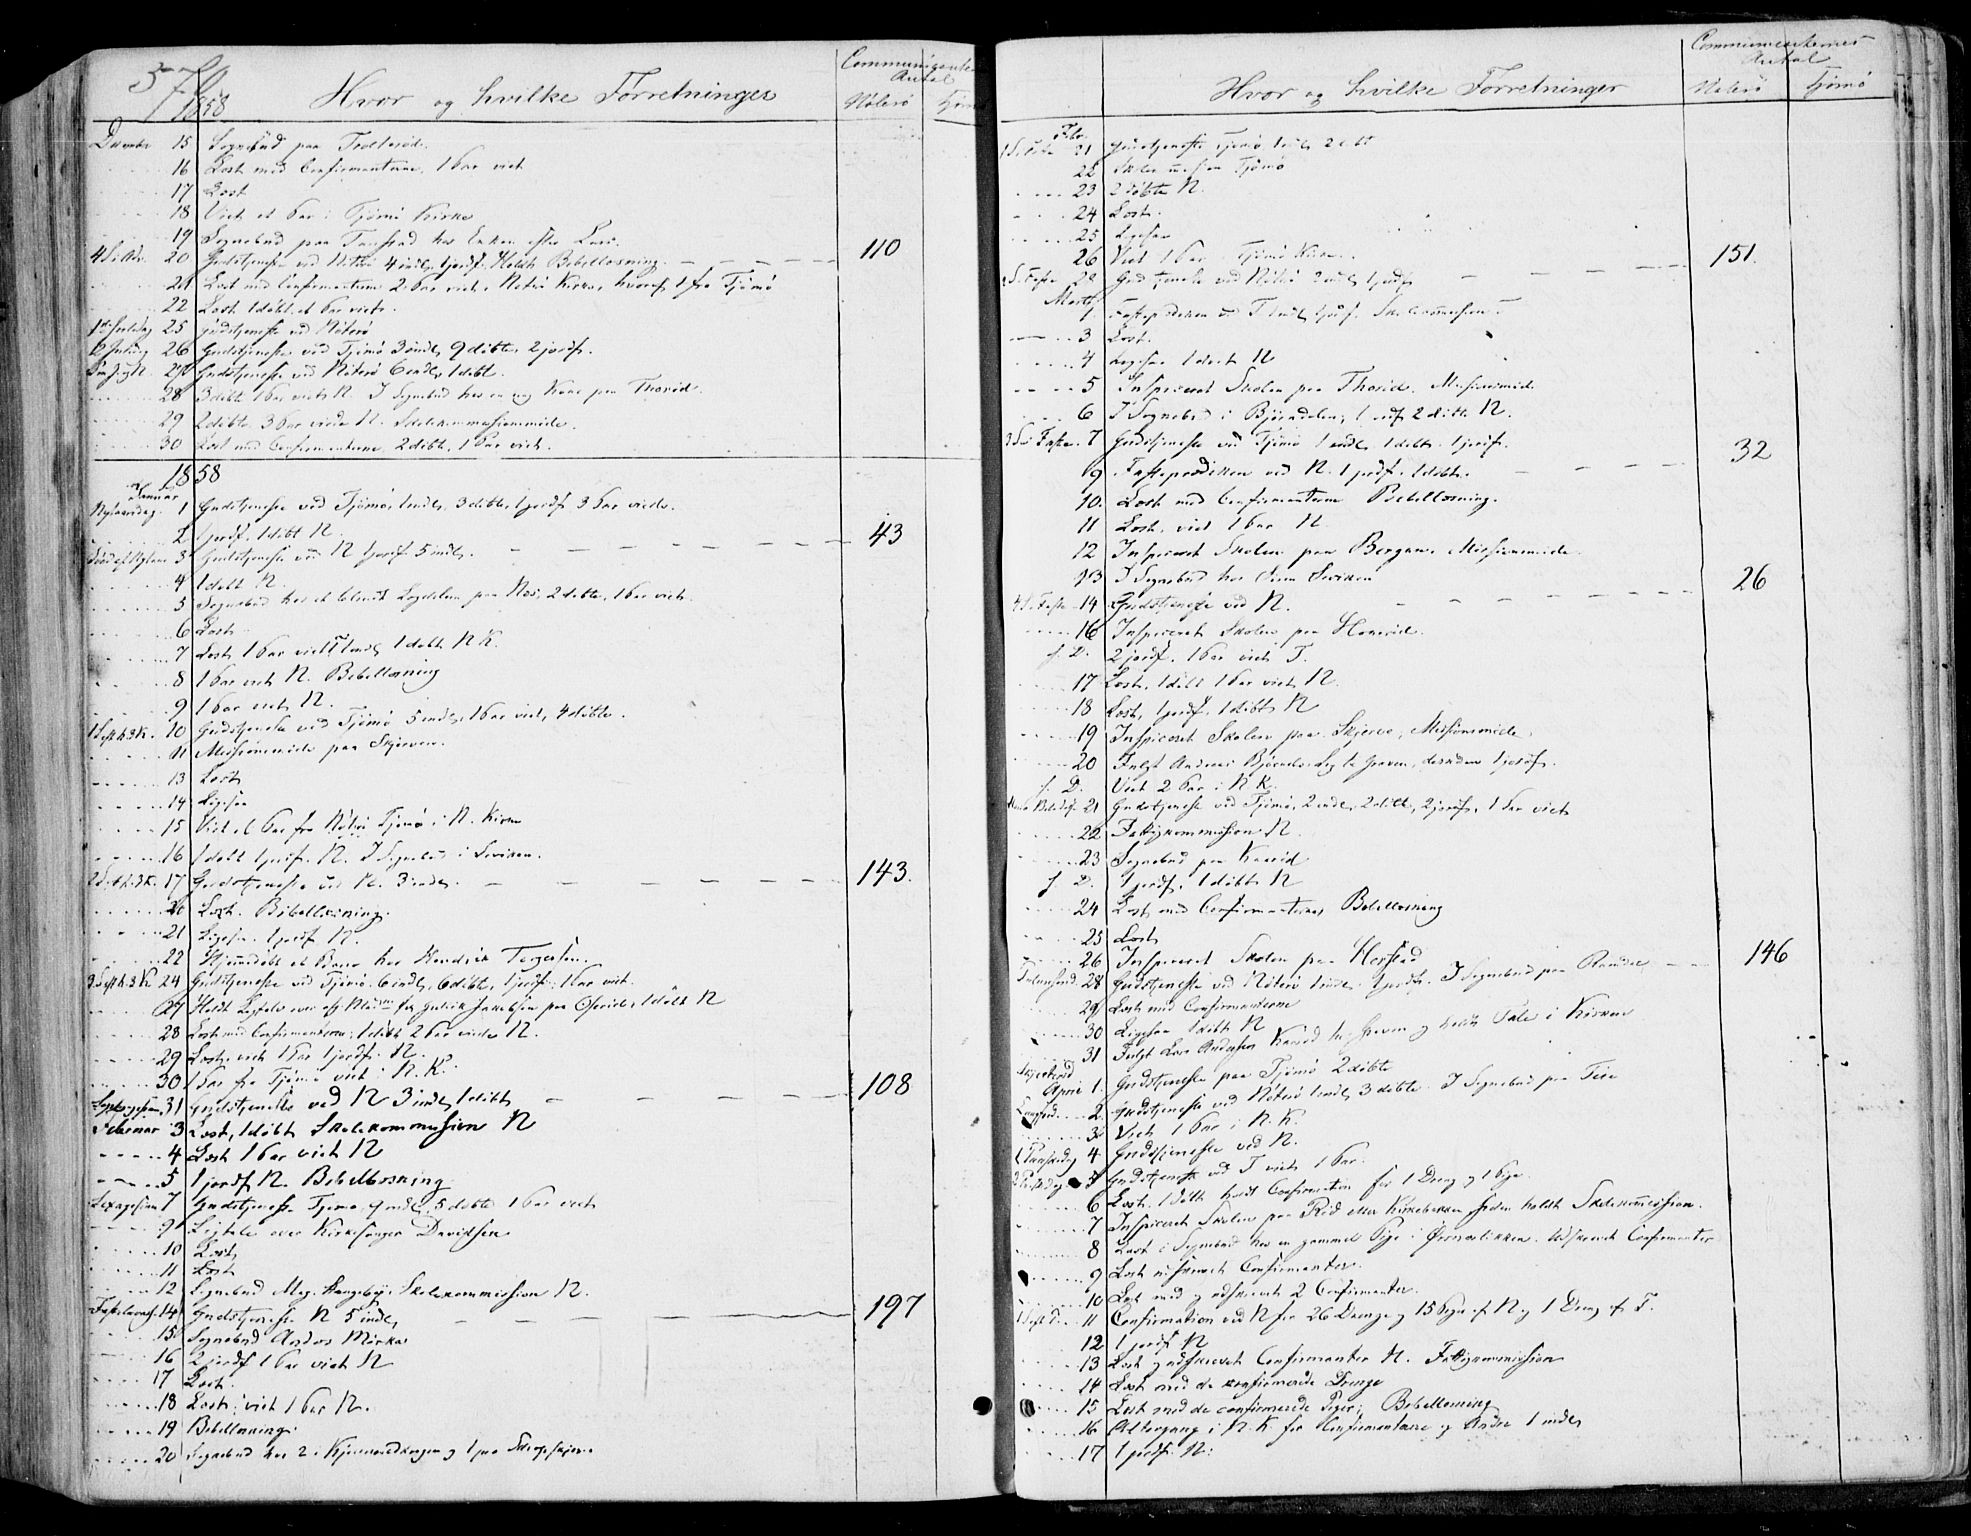 57
1858 Hvor og hvilke Forretninger Communicanter Antal Nøterø
December 15 Sognebud paa
16 Læst med Confirmanterne, 1 Par viet
17 Læst
18 Viet et Par i Tjømø Kirke
19 Sognebud paa hos Enken efter Lars
4 S. Adv. 20 Gudstjeneste ved Nøterø 4 indl. 1 jordf. Holdt Bibellæsning. 110
21 Læst med Confirmanterne 2 Par viet i Nøterø Kirke, hvoraf 1 fra Tjømø
22 Læst 1 døbt et Par viet.
1ste Juledag 25 Gudstjeneste ved Nøterø
2 Juledag 26 Gudstjeneste ved Tjømø 3 indl, 9 døbte, 2 jordf.
27 Gudstjeneste ved Nøterø 6 indl, 1 døbt.
28 3 døbt 1 Par viet N. I Sognebud hos en syg Kone paa Thorød.
29 2 døbte 3 Par viede N. Skolekommissionsmøde.
30 Læst med Confirmanterne 2 døbte, 1 Par viet.
1858
Januar
Nytaarsdag 1 Gudstjeneste ved Tjømø, 1 indl, 3 døbte, 1 jordf 3 Par viede.
2 1 jordf. 1 døbt N. 43
3 Gudstjeneste ved N 1 jordf. 5 indl.
4 1 døbt N.
5 Sognebud hos et paa Nes. 2 døbte, 1 Par viet.
6 Læst
7 Læst 1 Par viet 1 døbt N K.
8 1 Par viet N. Bibellæsning
9 1 Par viet N.
1 S. e. h. 3 K. 10 Gudstjeneste ved Tjømø 5 indl, 1 Par viet, 4 døbte.
11 Missionsmøde paa Skjerven.
13 Læst
14 Ligesaa
15 Viet et Par fra Nøterø Tjømø i N. Kirke
16 1 døbt 1 jordf. N. I Sognebud i
2 S. e. h. 3 K. 17 Gudstjeneste ved N. 3 indl. 143.
20 Læst. Bibellæsning.
21 Ligesaa. 1 jordf N.
22 Hjemmedøbt et Barn hos Hendrik Torgersen.
3 S. e. h. 3 K 24 Gudstjeneste ved Tjømø 6 indl, 6 døbte, 1 jordf, 1 Par viet.
27 Holdt Ligtale over for Jacobsen paa 1 døbt N
28 Læst med Confirmanterne, 1 døbt 2 Par viede N.
29 Læst, viet 1 Par 1 jordf. N.
30 1 Par fra Tjømø viet i N. K.
31 Gudstjeneste ved N 3 indl, 1 døbt 108
Februar 3 Læst, 1 døbt, Skolekommission N
4 Læst 1 Par viet N
5 1 jordf N. Bibellæsning
Sexagesima 7 Gudstjeneste Tjømø 9 indl, 5 døbte 1 Par viet
9 Ligtale over Kirkesanger Davidsen
10 Læst
11 Læst
12 Sognebud Skolekommission N.
Fastelavns 14 Gudstjeneste N 5 indl, 197
15 Sognebud Anders
16 2 jordf 1 Par viet N
17 Læst.
18 Læst, viet 1 Par N.
19 Bibellæsning.
20 Sognebud hos 2 og 1 paa
Hvor og hvilke Forretninger Communicanternes Antal Nøterø Tjømø
Febr.
1 S. i Faste 21 Gudstjeneste Tjømø 1 indl, 2 døbt
22 Tjømø
23 2 døbte N.
24 Læst.
25 Ligesaa
26 Viet 1 Par Tjømø Kirke. 151.
2 S. i Faste 28 Gudstjeneste ved Nøterø 2 indl, 1 jordf
Marts
1 Fasteprædiken ved T 1 indl, 1 jordf. Skolekommission
3 Læst.
4 Ligesaa 1 døbt N
5 Inspiceret Skolen paa Thorød. Missionsmøde
6 I Sognebud i Bjørndalen, 1 jordf 2 døbte N.
3 S. i Faste 7 Gudstjeneste ved Tjømø 1 indl, 1 døbt. 1 jordf. 32
9 Fasteprædiken ved N. 1 jordf. 1 døbt.
10 Læst med Confirmanterne Bibellæsning.
11 Læst, viet 1 Par N.
12 Inspiceret Skolen paa Bergan, Missionsmøde
13 I Sognebud hos 26
4 S. i Faste 14 Gudstjeneste ved N.
16 Inspiceret Skolen paa
s. D. 2 jordf. 1 Par viet T.
17 Læst, 1 døbt 1 Par viet N.
18 Læst, 1 jordf, 1 døbt N
19 Inspiceret Skolen paa Skjerve, Missionsmøde.
20 Fulgt til Graven, desuden 1 jordf.
s. D. Viet 2 Par i N K.
21 Gudstjeneste ved Tjømø, 2 indl, 2 døbte, 2 jordf, 1 Par viet
22 Fattigkommission N.
23 Sognebud paa
s. D. 1 jordf. 1 døbt N
24 Læst med Confirmanterne, Bibellæsning
25 Læst
26 Inspiceret Skolen paa Herstad 146
Palmesønd. 28 Gudstjeneste ved Nøterø 1 indl. 2 jordf. I Sognebud paa
29 Læst med Confirmanterne
30 Ligesaa 1 døbt N
31 Fulgt Lars Andersen til Graven og holdt Tale i Kirken
April 1 Gudstjeneste paa Tjømø 2 døbte
2 Gudstjeneste ved Nøterø 1 indl, 3 døbte. I Sognebud paa Teie
3 Viet 1 Par i N. K.
1 Paaskedag 4 Gudstjeneste ved N.
2 Paaskedag 5 Gudstjeneste ved T viet 1 Par.
6 Læst. 1 døbt holdt Confirmation for 1 Dreng og 1 Pige
7 Inspiceret Skolen paa Rød eller Kirkebakken, siden holdt Skolekommission.
8 Læst i Sognebud hos en gammel Pige i Udskrevet Confirmanter
9 Læst udskrevet Confirmanter.
10 Læst med og udskrevet 2 Confirmanter.
11 Confirmation ved N for 26 Drenge og 15 Piger af N og 1 Dreng af T.
12 1 jordf N
13 Læst og udskrevet Confirmanter N. Fattigkommission
14 Læst med de confirmerede Drenge
15 Læst med de confirmerede Piger, Bibellæsning
16 Altergang i N. K. for Confirmanterne og Andre 1 indl,
17 1 jordf. N.